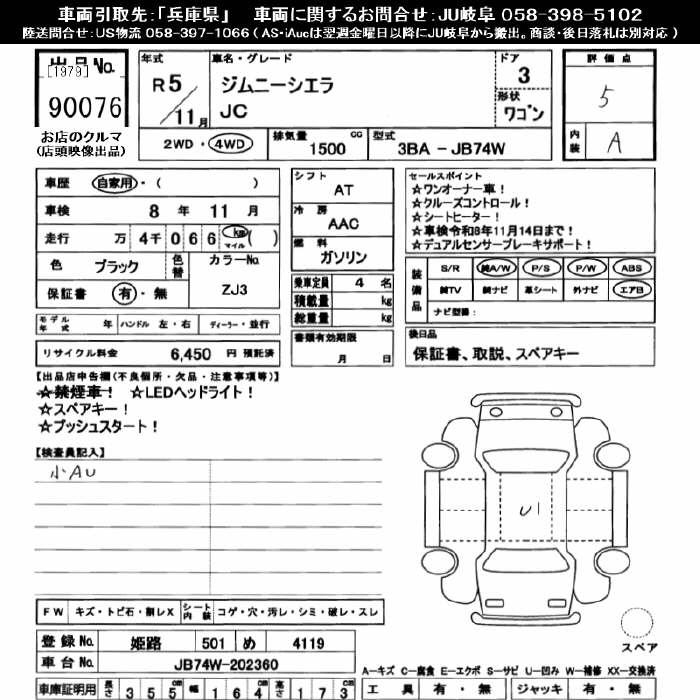 車両引取先:「兵庫県」 車両に関するお問合せ:JU岐阜 058-398-5102
陸送問合せ:US物流 058-397-1066 ( AS・iAucは翌週金曜日以降にJU岐阜から搬出。商談・後日落札は別対応 )
出品No.
[1979]
90076
お店のクルマ
(店頭映像出品)
年式 車名・グレード ドア 評価点
R 5 / 11 月 ジムニーシエラ 3 5
JC 形状 ワゴン
2WD・4WD 排気量 1500 CC 型式 3BA - JB74W 内装 A
車歴 自家用・( )
車検 8 年 11 月
走行 万 4千 0 6 6 km マイル ( )
色 ブラック 色替 カラーNo.
保証書 有・無 ZJ3
シフト AT
冷房 AAC
燃料 ガソリン
乗車定員 4 名
積載量 kg
総重量 kg
セールスポイント
☆ワンオーナー車!
☆クルーズコントロール!
☆シートヒーター!
☆車検令和8年11月14日まで!
☆デュアルセンサーブレーキサポート!
装備品 S/R 純A/W P/S P/W ABS
純TV 純ナビ 革シート 外ナビ エアB
ナビ型番:
モデル年式 年 ハンドル 左・右 ディーラー・並行
書類有効期限
月 日
後日品
保証書、取説、スペアキー
リサイクル料金 6,450 円 預託済
【出品店申告欄(不良個所・欠品・注意事項等)】
☆禁煙車! ☆LEDヘッドライト!
☆スペアキー!
☆プッシュスタート!
【検査員記入】
小AU
U1
FW キズ・トビ石・割レX シート内装 コゲ・穴・汚レ・シミ・破レ・スレ
スペア
登録No. 姫路 501 め 4119
車台No. JB74W-202360
A-キズ C-腐食 E-エクボ S-サビ U-凹み W-補修 XX-交換済
車庫証明用 長さ 3 5 5 cm 幅 1 6 4 cm 高さ 1 7 3 cm 工具 有・無 ジャッキ 有・無